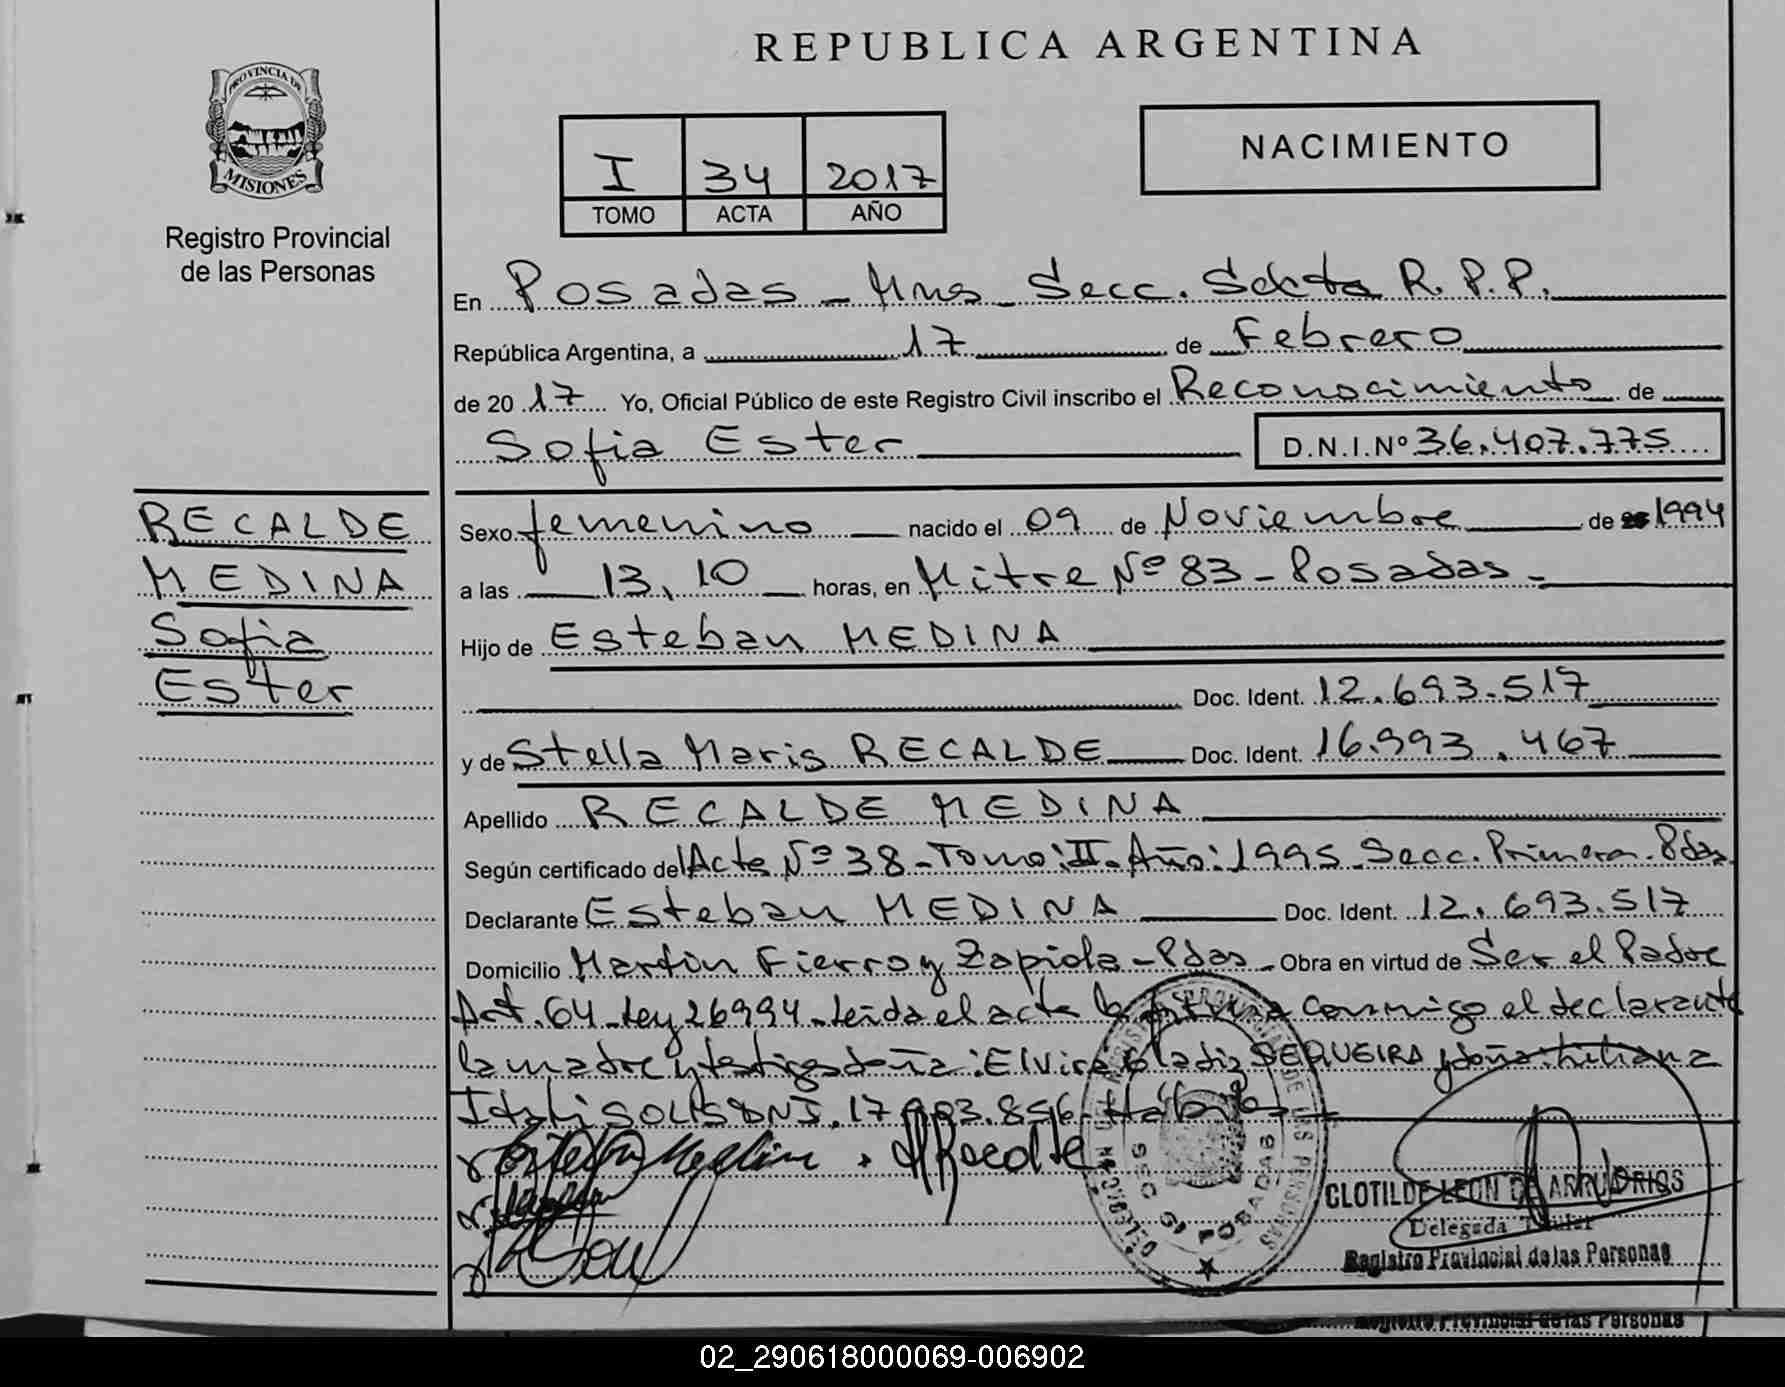 REPUBLICA ARGENTINA
PROVINCIA DE
MISIONES
Registro Provincial
de las Personas
I 34 2017
TOMO ACTA AÑO
NACIMIENTO
En Posadas - Mnes Secc. Sexta R.P.P.
República Argentina, a 17 de Febrero
de 2017 Yo, Oficial Público de este Registro Civil inscribo el Reconocimiento de
Sofia Ester D.N.I.Nº 36.407.775
RECALDE
MEDINA
Sofia
Ester
Sexo femenino nacido el 09 de Noviembre de 1994
a las 13,10 horas, en Mitre Nº 83 - Posadas -
Hijo de Esteban MEDINA
Doc. Ident. 12.693.517
y de Stella Maris RECALDE Doc. Ident. 16.993.467
Apellido RECALDE MEDINA
Según certificado del Acta Nº 38 - Tomo: II - Año: 1995 Secc. Primera - Pdas
Declarante Esteban MEDINA Doc. Ident. 12.693.517
Domicilio Martin Fierro y Zapiola - Pdas - Obra en virtud de Ser el Padre
Art. 64 - Ley 26994 - Leida el acta la conmigo el declarante
la madre y testigos doña: Elvira Gladiz SEQUEIRA y doña: Liliana
Itati SOLIS DNI. 17. .856 -
Esteban Medina . Recalde
SECC 6º POSADAS
CLOTILDE LEON DE ARRUDRIOS
Delegada Titular
Registro Provincial de las Personas
Registro Provincial de las Personas
02_290618000069-006902